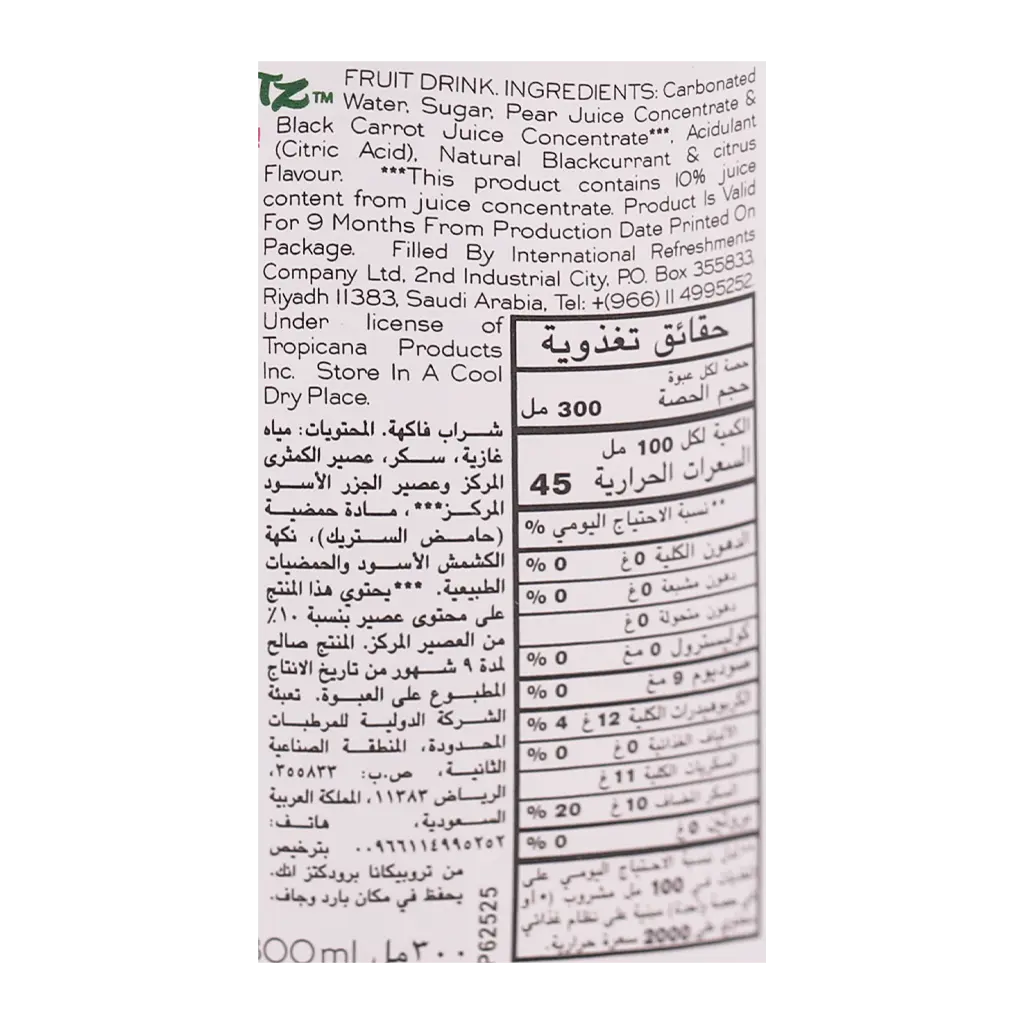 TZ™ FRUIT DRINK. INGREDIENTS: Carbonated
Water, Sugar, Pear Juice Concentrate &
Black Carrot Juice Concentrate***, Acidulant
(Citric Acid), Natural Blackcurrant & citrus
Flavour. ***This product contains 10% juice
content from juice concentrate. Product Is Valid
For 9 Months From Production Date Printed On
Package. Filled By International Refreshments
Company Ltd, 2nd Industrial City, P.O. Box 355833,
Riyadh 11383, Saudi Arabia, Tel: +(966) 11 4995252
Under license of
Tropicana Products
Inc. Store In A Cool
Dry Place.
شـــراب فاكهة. المحتويات: مياه
غازية، ســكر، عصير الكمثرى
المركز وعصير الجزر الأســود
المركــز***، مــادة حمضيــة
(حامــض الســتريك)، نكهة
الكشمش الأســود والحمضيات
الطبيعية. ***يحتوي هذا المنتج
على محتوى عصير بنسبة ١٠٪
من العصير المركز. المنتج صالح
لمدة ٩ شــهور من تاريخ الانتاج
المطبــوع على العبــوة. تعبئة
الشــركة الدوليــة للمرطبــات
المحــدودة، المنطقــة الصناعية
الثانيــة، ص.ب: ٣٥٥٨٣٣،
الريــاض ١١٣٨٣، المملكة العربية
الســعودية، هاتــف:
٠٠٩٦٦١١٤٩٩٥٢٥٢ بترخيص
من تروبيكانا برودكتز انك.
يحفظ في مكان بارد وجاف.
٣٠٠ مل 300ml
P62525
حقائق تغذوية
حصة لكل عبوة
حجم الحصة 300 مل
الكمية لكل 100 مل
السعرات الحرارية 45
**نسبة الاحتياج اليومي %
الدهون الكلية 0غ 0 %
دهون مشبعة 0غ 0 %
دهون متحولة 0غ
كوليسترول 0 مغ 0 %
صوديوم 9 مغ 0 %
الكربوهيدرات الكلية 12غ 4 %
الألياف الغذائية 0غ 0 %
السكريات الكلية 11غ
السكر المضاف 10غ 20 %
بروتين 0غ 0 %
نسبة الاحتياج اليومي على
في 100 مل مشروب (* أو
في حصة واحدة) مبنية على نظام غذائي
على 2000 سعرة حرارية.